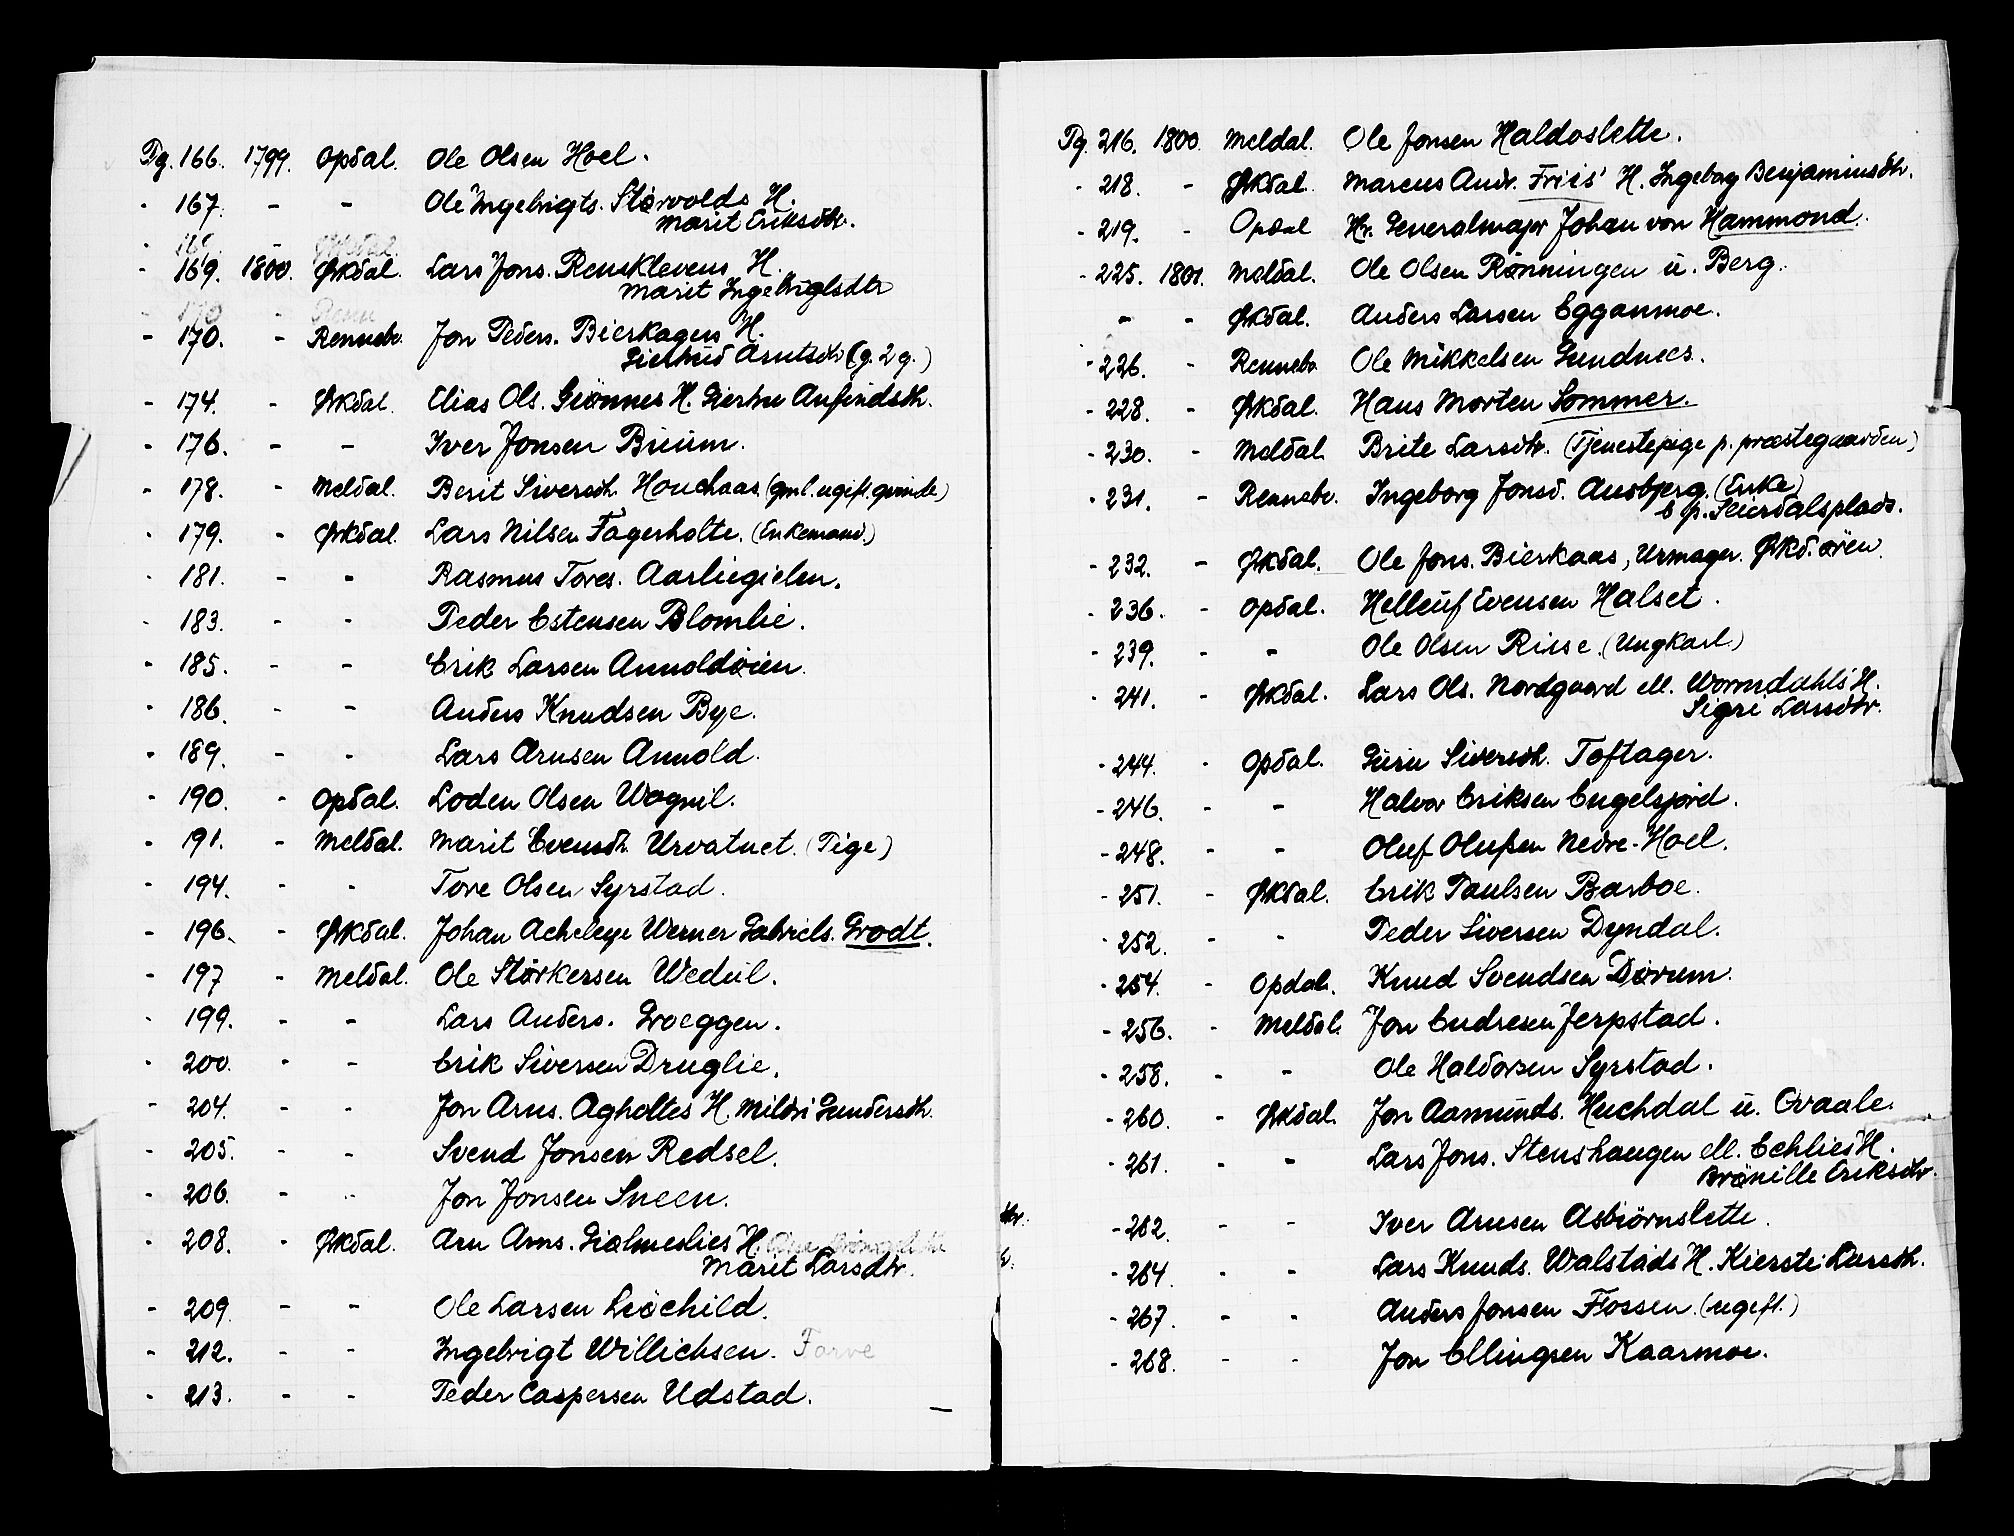 Pg. 166. 1799. Opdal. Ole Olsen Hoel.
- 167. - - Ole Ingebrigts. Størvolds H.
Marit Eriksdtr.
- 169. 1800. Ørkdal. Lars Jons. Rensklevens H.
Marit Ingebrigtsdtr
- 170. - Rennebo. Jon Peders. Bierkagers H.
Giertrud Arntsdtr (g. 2 g.)
- 174. - Ørkdal. Elias Ols. Giönnes H. Giertru Anfindsdtr.
- 176. - - Iver Jonsen Buum.
- 178. - Meldal. Berit Siversdtr. Houchaas (gml. ugift qvinde)
- 179. - Ørkdal. Lars Nilsen Fagerholte. (Enkemand.)
- 181. - - Rasmus Tores. Aarliegielen.
- 183. - - Peder Estensen Blomlie.
- 185. - - Erik Larsen Annoldöien.
- 186. - - Anders Knudsen Bye.
- 189. - - Lars Arnsen Annold.
- 190. - Opdal. Loden Olsen Wognil.
- 191. - Meldal. Marit Evensdtr. Urvatnet. (Pige)
- 194. - - Tore Olsen Syrstad.
- 196. - Ørkdal. Johan Acheleye Werner Gabriels. Grodt.
- 197 - Meldal. Ole Størkersen Wedül.
- 199. - - Lars Anders. Groeggen.
- 200. - - Erik Siversen Druglie.
- 204. - - Jon Arns. Agholtes H. Mildri Gundersdtr.
- 205. - - Svend Jonsen Redsel.
- 206. - - Jon Jonsen Sneen.
- 208. - Ørkdal. Arn Arns. Gialmeslies H.
Marit Larsdtr.
- 209. - - Ole Larsen Liöchild.
- 212. - - Ingebrigt Willichsen. Farve
- 213. - - Peder Caspersen Udstad.
Pg. 216. 1800. Meldal. Ole Jonsen Haldoslette.
- 218. - Ørkdal. Marcus Andr. Friis' H. Ingeborg Benjaminsdtr.
- 219. - Opdal Hr. Generalmajor Johan von Hammond.
- 225. 1801. Meldal. Ole Olsen Rönningen u. Berg.
- - Ørkdal. Anders Larsen Egganmoe.
- 226. - Rennebo Ole Mikkelsen Gundnes.
- 228. - Ørkdal. Hans Morten Sommer.
- 230. - Meldal. Brite Larsdtr. (Tjenestepige p. præstegaarden)
- 231. - Rennebo. Ingeborg Jonsd. Ausbjerg. (Enke)
p. Seierdalsplads.
- 232. - Ørkdal. Ole Jons. Bierkaas, Urmager. Ørkd.ören.
- 236. - Opdal. Helleuf Evensen Halset.
- 239. - - Ole Olsen Riise. (Ungkarl.)
- 241. - Ørkdal. Lars Ols. Nordgaard ell. Wormdahls H.
Sigri Larsdtr.
- 244. - Opdal. Guru Siversdtr. Toftager.
- 246. - - Halvor Eriksen Engelsjord.
- 248. - - Oluf Olufsen Nedre-Hoel.
- 251. - Ørkdal. Erik Paulsen Barboe.
- 252. - - Peder Siversen Dyndal.
- 254. - Opdal. Knud Svendsen Dörum.
- 256. - Meldal. Jon Endresen Jerpstad.
- 258. - - Ole Haldorsen Syrstad.
- 260. - Ørkdal. Jon Aamunds. Huchdal u. Qvaale.
- 261. - - Lars Jons. Stenshaugen ell. Echlies H.
Brönille Eriksdtr.
- 262. - - Iver Arnsen Asbiörnslette.
- 264. - - Lars Knuds. Walstads H. Kiersti Larsdtr.
- 267. - - Anders Jonsen Fossen. (ugift.)
- 268. - - Jon Ellingsen Kaarmoe.